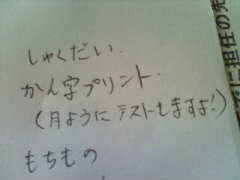 しゃくだい.
かん字プリント.
(月ように テストしますよ!)
もちもの
に担任の先